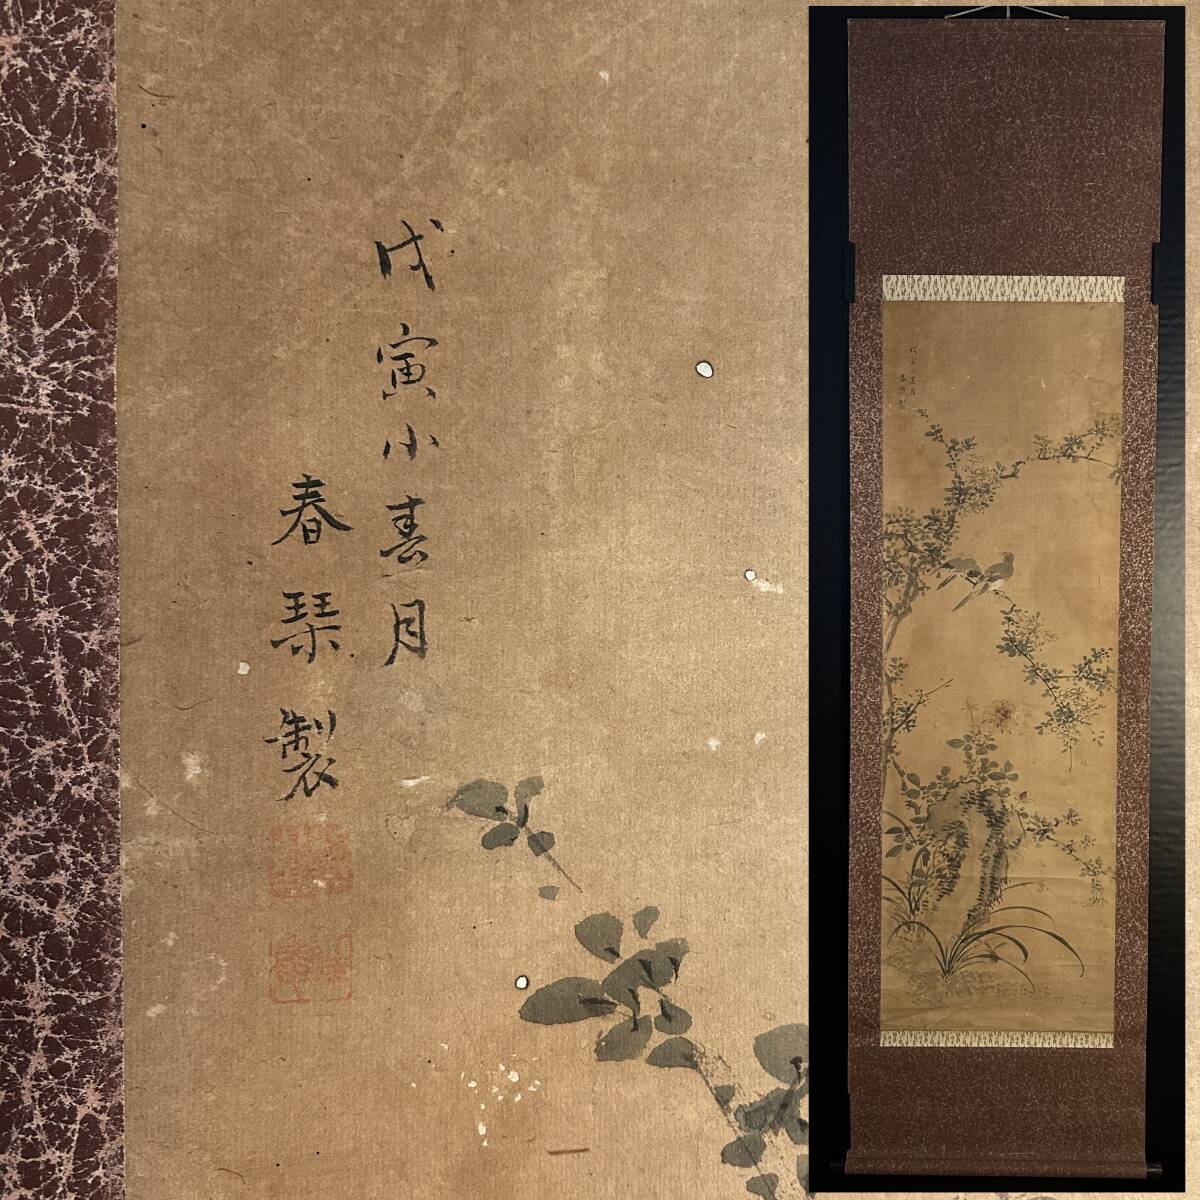 戊寅小春月
春琹製